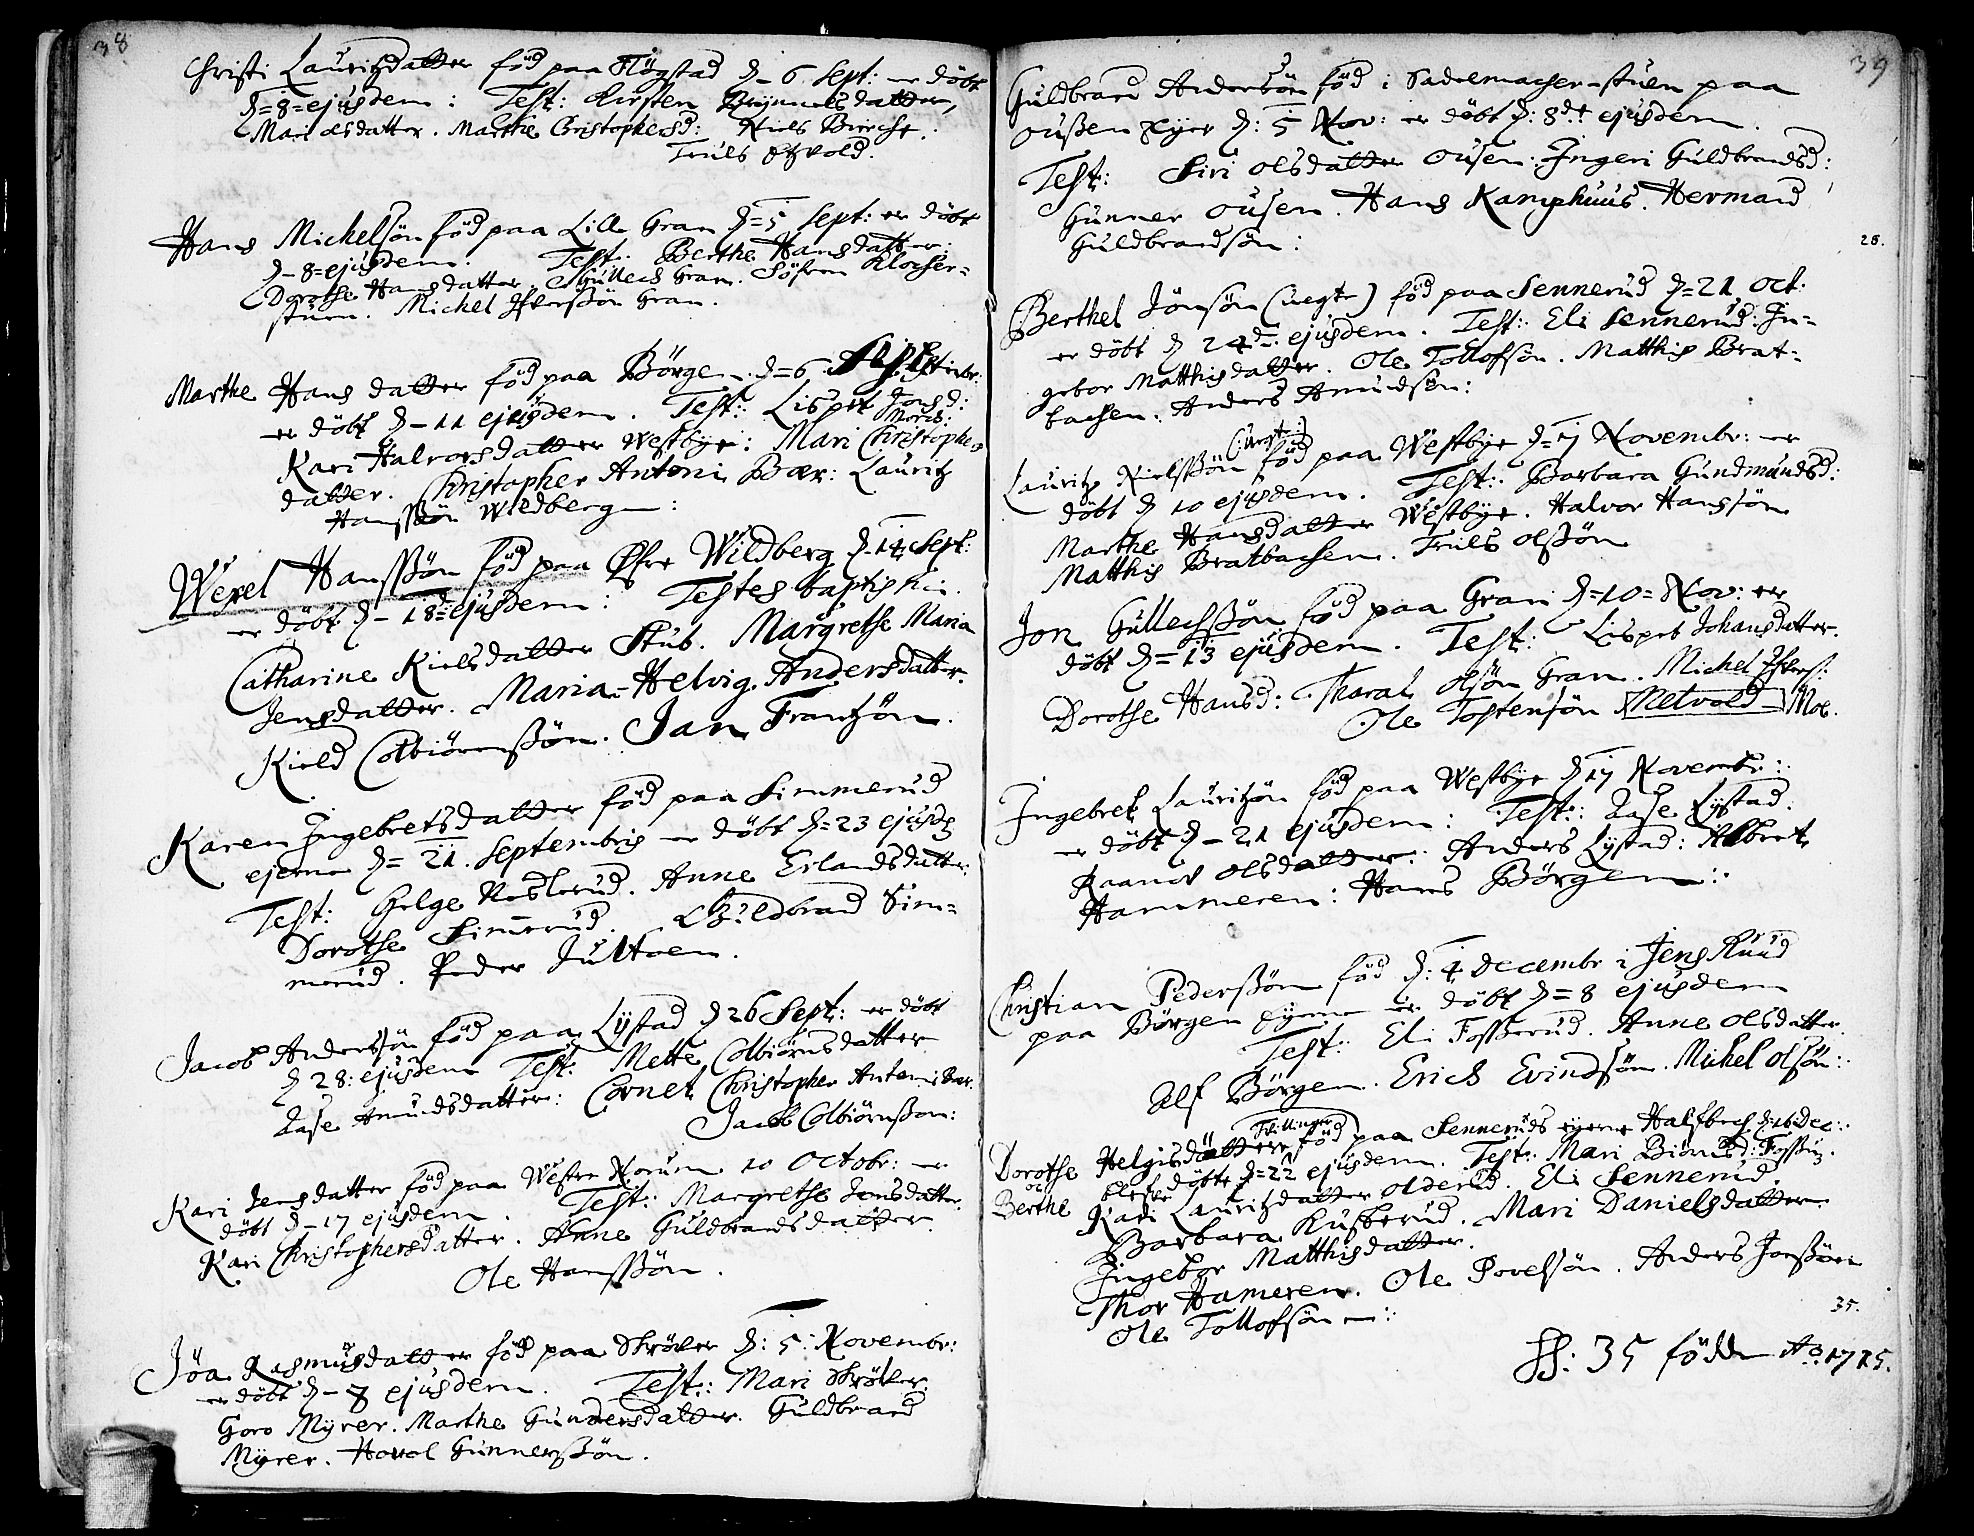 38
Christi Lauritzdatter föd paa Högstad d– 6 Sept: er döbt
d=8=ejusdem: Test: Kirsten Brÿnnelsdatter,
Mari olsdatter. Marthe Christophersd: Niels Birche.
Truls Etzvold.
Hans Michelsön föd paa Lille Gran d=5 Sept: er döbt
d–8=ejusdem. Test: Berthe Hansdatter.
Dorothe Hansdatter. Gullech Gran. Söfren Klocher=
stuen. Michel Ifversön Gran.
Marthe Hansdatter föd paa Börge d=6 Septembr:
er döbt d–11 ejusdem. Test: Lisbet Jonsd:
Kari Halvorsdatter Westbye: Mari Christophers
datter. Christopher Antoni Bær: Lauritz
Hanssön Wildbergen:
Wexel Hanssön föd paa Øfre Wildberg d–14 Sept:
er döbt d–18 ejusdem: Testes baptismi.
Catharine Kieldsdatter Stub. Margrethe Maria
Jensdatter. Maria=Helvig Andersdatter.
Kield Colbiörnssön. Jan Frantzön.
Karen Ingebretsdatter föd paa Simmerud
ejerne d= 21. Septembris er döbt d=23 ejusd
Test: Helge Roslerud. Anne Erlandsdatter.
Dorothe Simmerud. Guldbrand Sim=
merud. Peder Jultoen.
Jacob Anderssön föd paa Lÿstad d 26 Sept: er döbt
d 28: ejusdem Test: Mette Colbiörnsdatter
Aase Amundsdatter: Cornet Christopher Antoni Bær.
Jacob Colbiörnsson:
Kari Jensdatter föd paa Westre Norum 10 Octobr: er
döbt d–17 ejusdem. Test: Margrethe Jonsdatter.
Kari Christophersdatter. Anne Guldbrandsdatter.
Ole Hanssön.
Jöa Rasmusdatter föd paa Skröder d: 5: Novembr:
er döbt d–8 ejusdem. Test: Mari Skröder.
Goro Myrer. Marthe Gundersdatter. Guldbrand
Myrer. Havol Gunnerssön.
39
Guldbrand Andersön föd i Sadelmacher=stuen paa
Ousen eyer d: 5 Nov: er döbt d: 8de ejusdem.
Test: Siri olsdatter Ousen. Ingeri Guldbrandsd:
Gunner Ousen. Hans Kamphuus. Hermand
Guldbrandsön:
28.
Berthel Jönsön (uegte) föd paa Sennerud d=21 Oct.
er döbt d 24de ejusdem. Test: Eli Sennerud. In=
gebor Matthisdatter. Ole Tollofsön. Matthis Brat=
bachen. Anders Amundsön:
(:Uegte:)
Lauritz Nielssön föd paa Westbye d=7 Novembr: er
döbt d 10 ejusdem. Test: Barbara Gundmundsd:
Marthe Hansdatter Westbye. Halvor Hanssön
Matthis Bratbachen. Truls olssön
Jon Gullechssön föd paa Gran d=10=Nov: er
döbt d=13 ejusdem. Test: Lisbet Johansdatter.
Dorothe Hansd: Tharal olsön Gran. Michel Ifvers:
Ole Tostensön Netvold Moe.
Ingebret Lauritzön föd paa Westbye d 17 Novemb:
er döbt d–21 ejusdem: Test: Aase Lystad.
Raanod olsdatter: Anders Lÿstad: Albret
Hammeren: Hans Börgen:
Christian Pederssön föd d: 4 Decembr i Jens Ruud
paa Börgen eyerne er döbt d=8 ejusdem
Test: Eli Fosserud. Anne olsdatter.
Alf Börgen. Erich Evindsön. Michel olsön:
Tvillinger
Dorothe Helgisdötter föd paa Senneruds eyerne Halsbech d=16 Dec:
oc blefve döbte d=22 ejusdem. Test: Mari Biörnsd: Fossum.
Berthe Kari Lauritzdatter Olderud. Eli Sennerud.
Barbara Kusserud. Mari Danielsdatter.
Ingebor Matthisdatter.
Thor Hameren. Ole Povelsön. Anders Jonssön
Ole Tollofsön:
35.
SS: 35 födde Ao 1715.